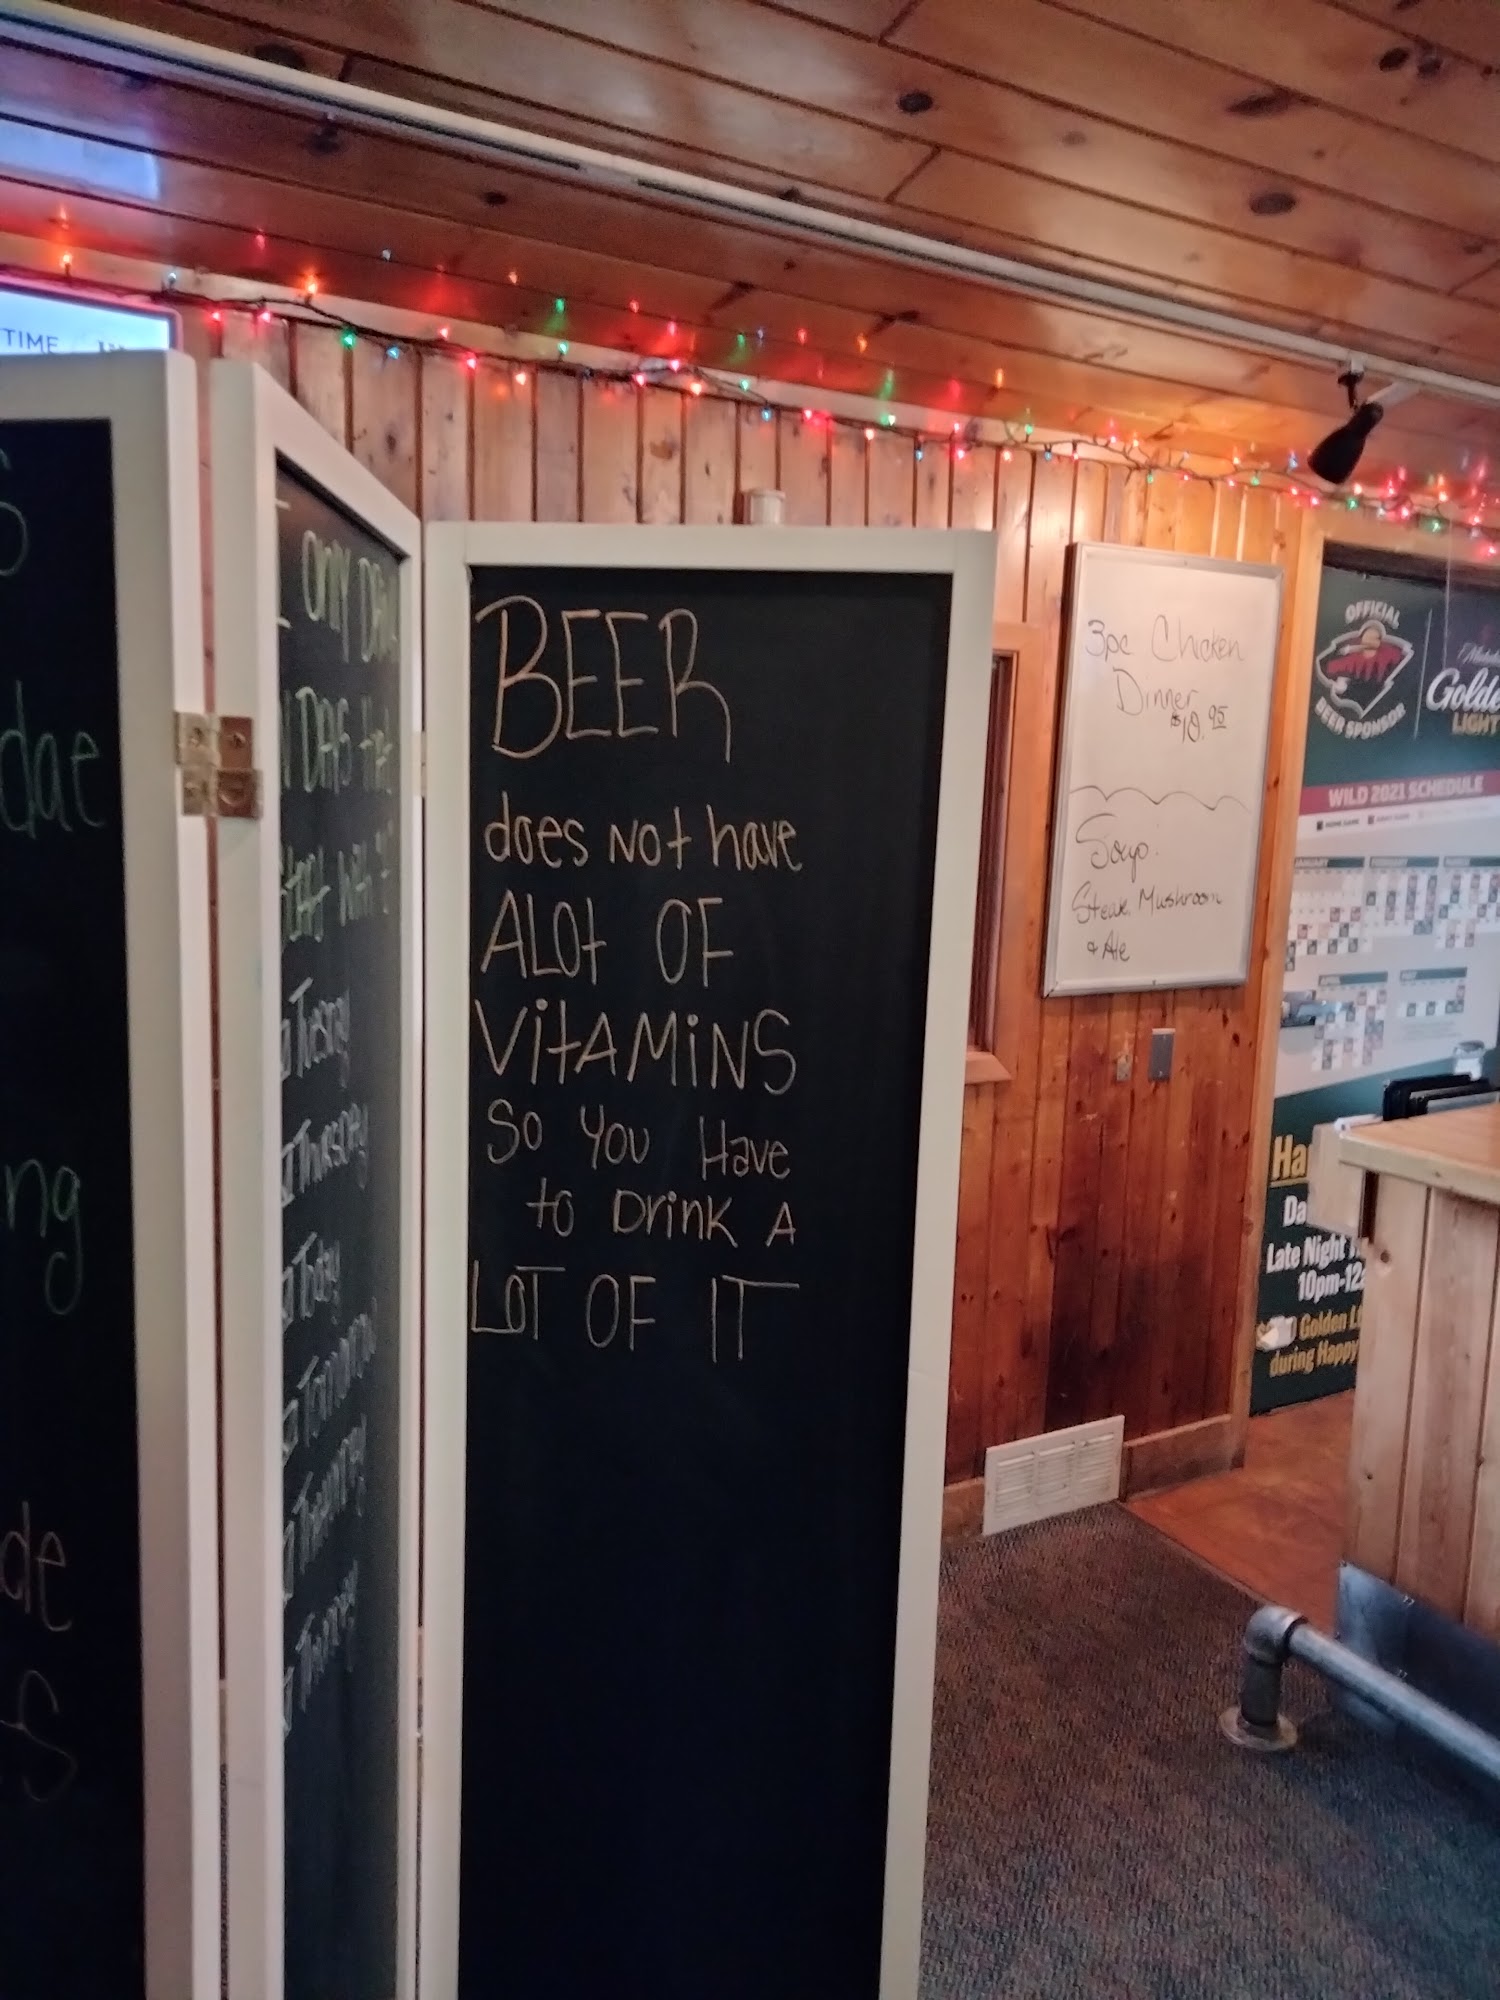 TIME
dae
ng
de
I ONLY DRINK
DAYS that
Start with "T"
Tuesday
Thursday
Today
Tomorrow
BEER
does NOT have
ALOt OF
VitAMiNS
So You Have
to Drink A
LOT OF IT
3pc Chicken
Dinner
$10.95
Soup:
Steak, Mushroom
& Ale
OFFICIAL
BEER SPONSOR
Golde
LIGHT
WILD 2021 SCHEDULE
JANUARY FEBRUARY MARCH
APRIL MAY
Ha
Da
Late Night
10pm-12
Golden L
during Happy